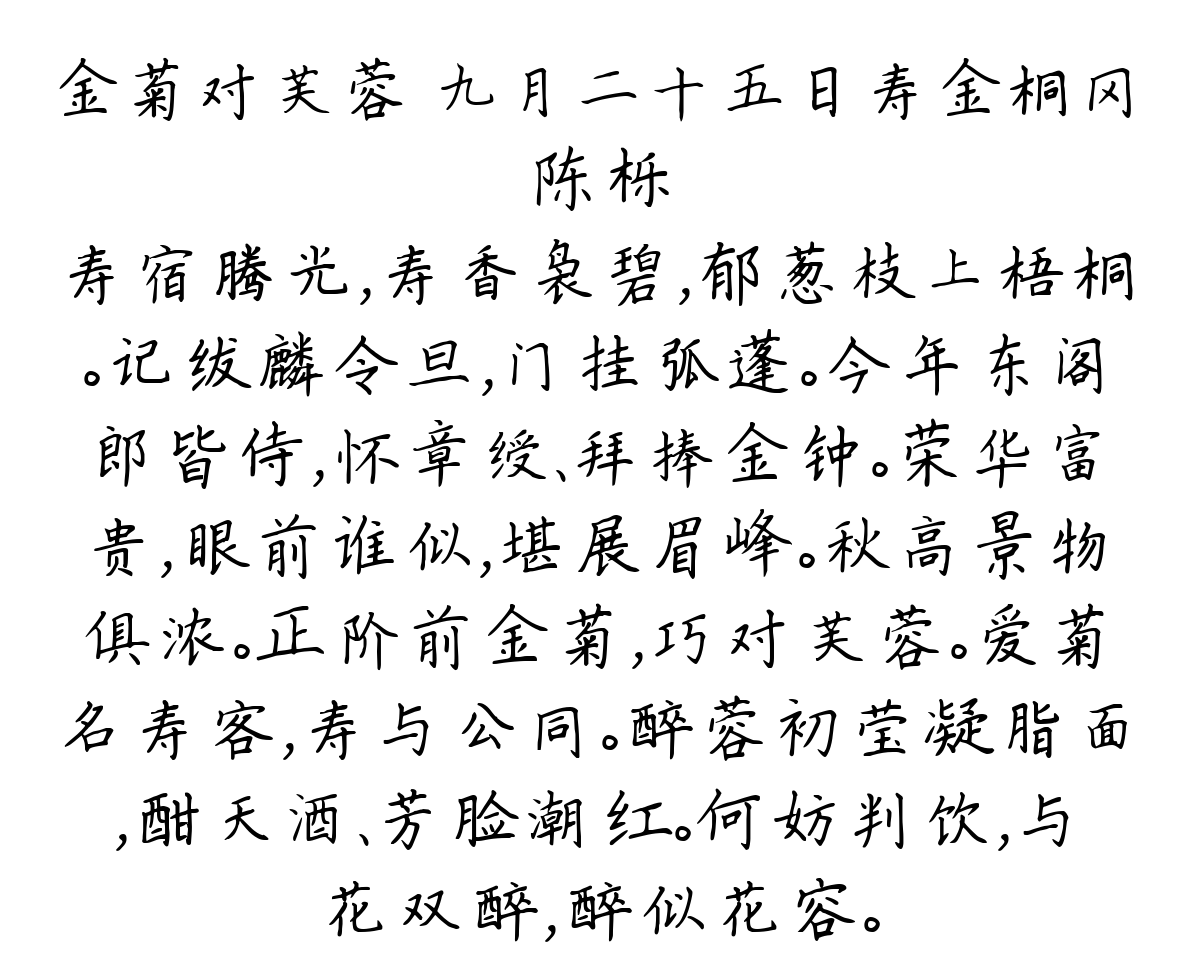 金菊对芙蓉 九月二十五日寿金桐冈
陈栎
寿宿腾光,寿香袅碧,郁葱枝上梧桐
。记绂麟令旦,门挂弧蓬。今年东阁
郎皆侍,怀章绶、拜捧金钟。荣华富
贵,眼前谁似,堪展眉峰。秋高景物
俱浓。正阶前金菊,巧对芙蓉。爱菊
名寿客,寿与公同。醉蓉初莹凝脂面
,酣天酒、芳脸潮红。何妨判饮,与
花双醉,醉似花容。